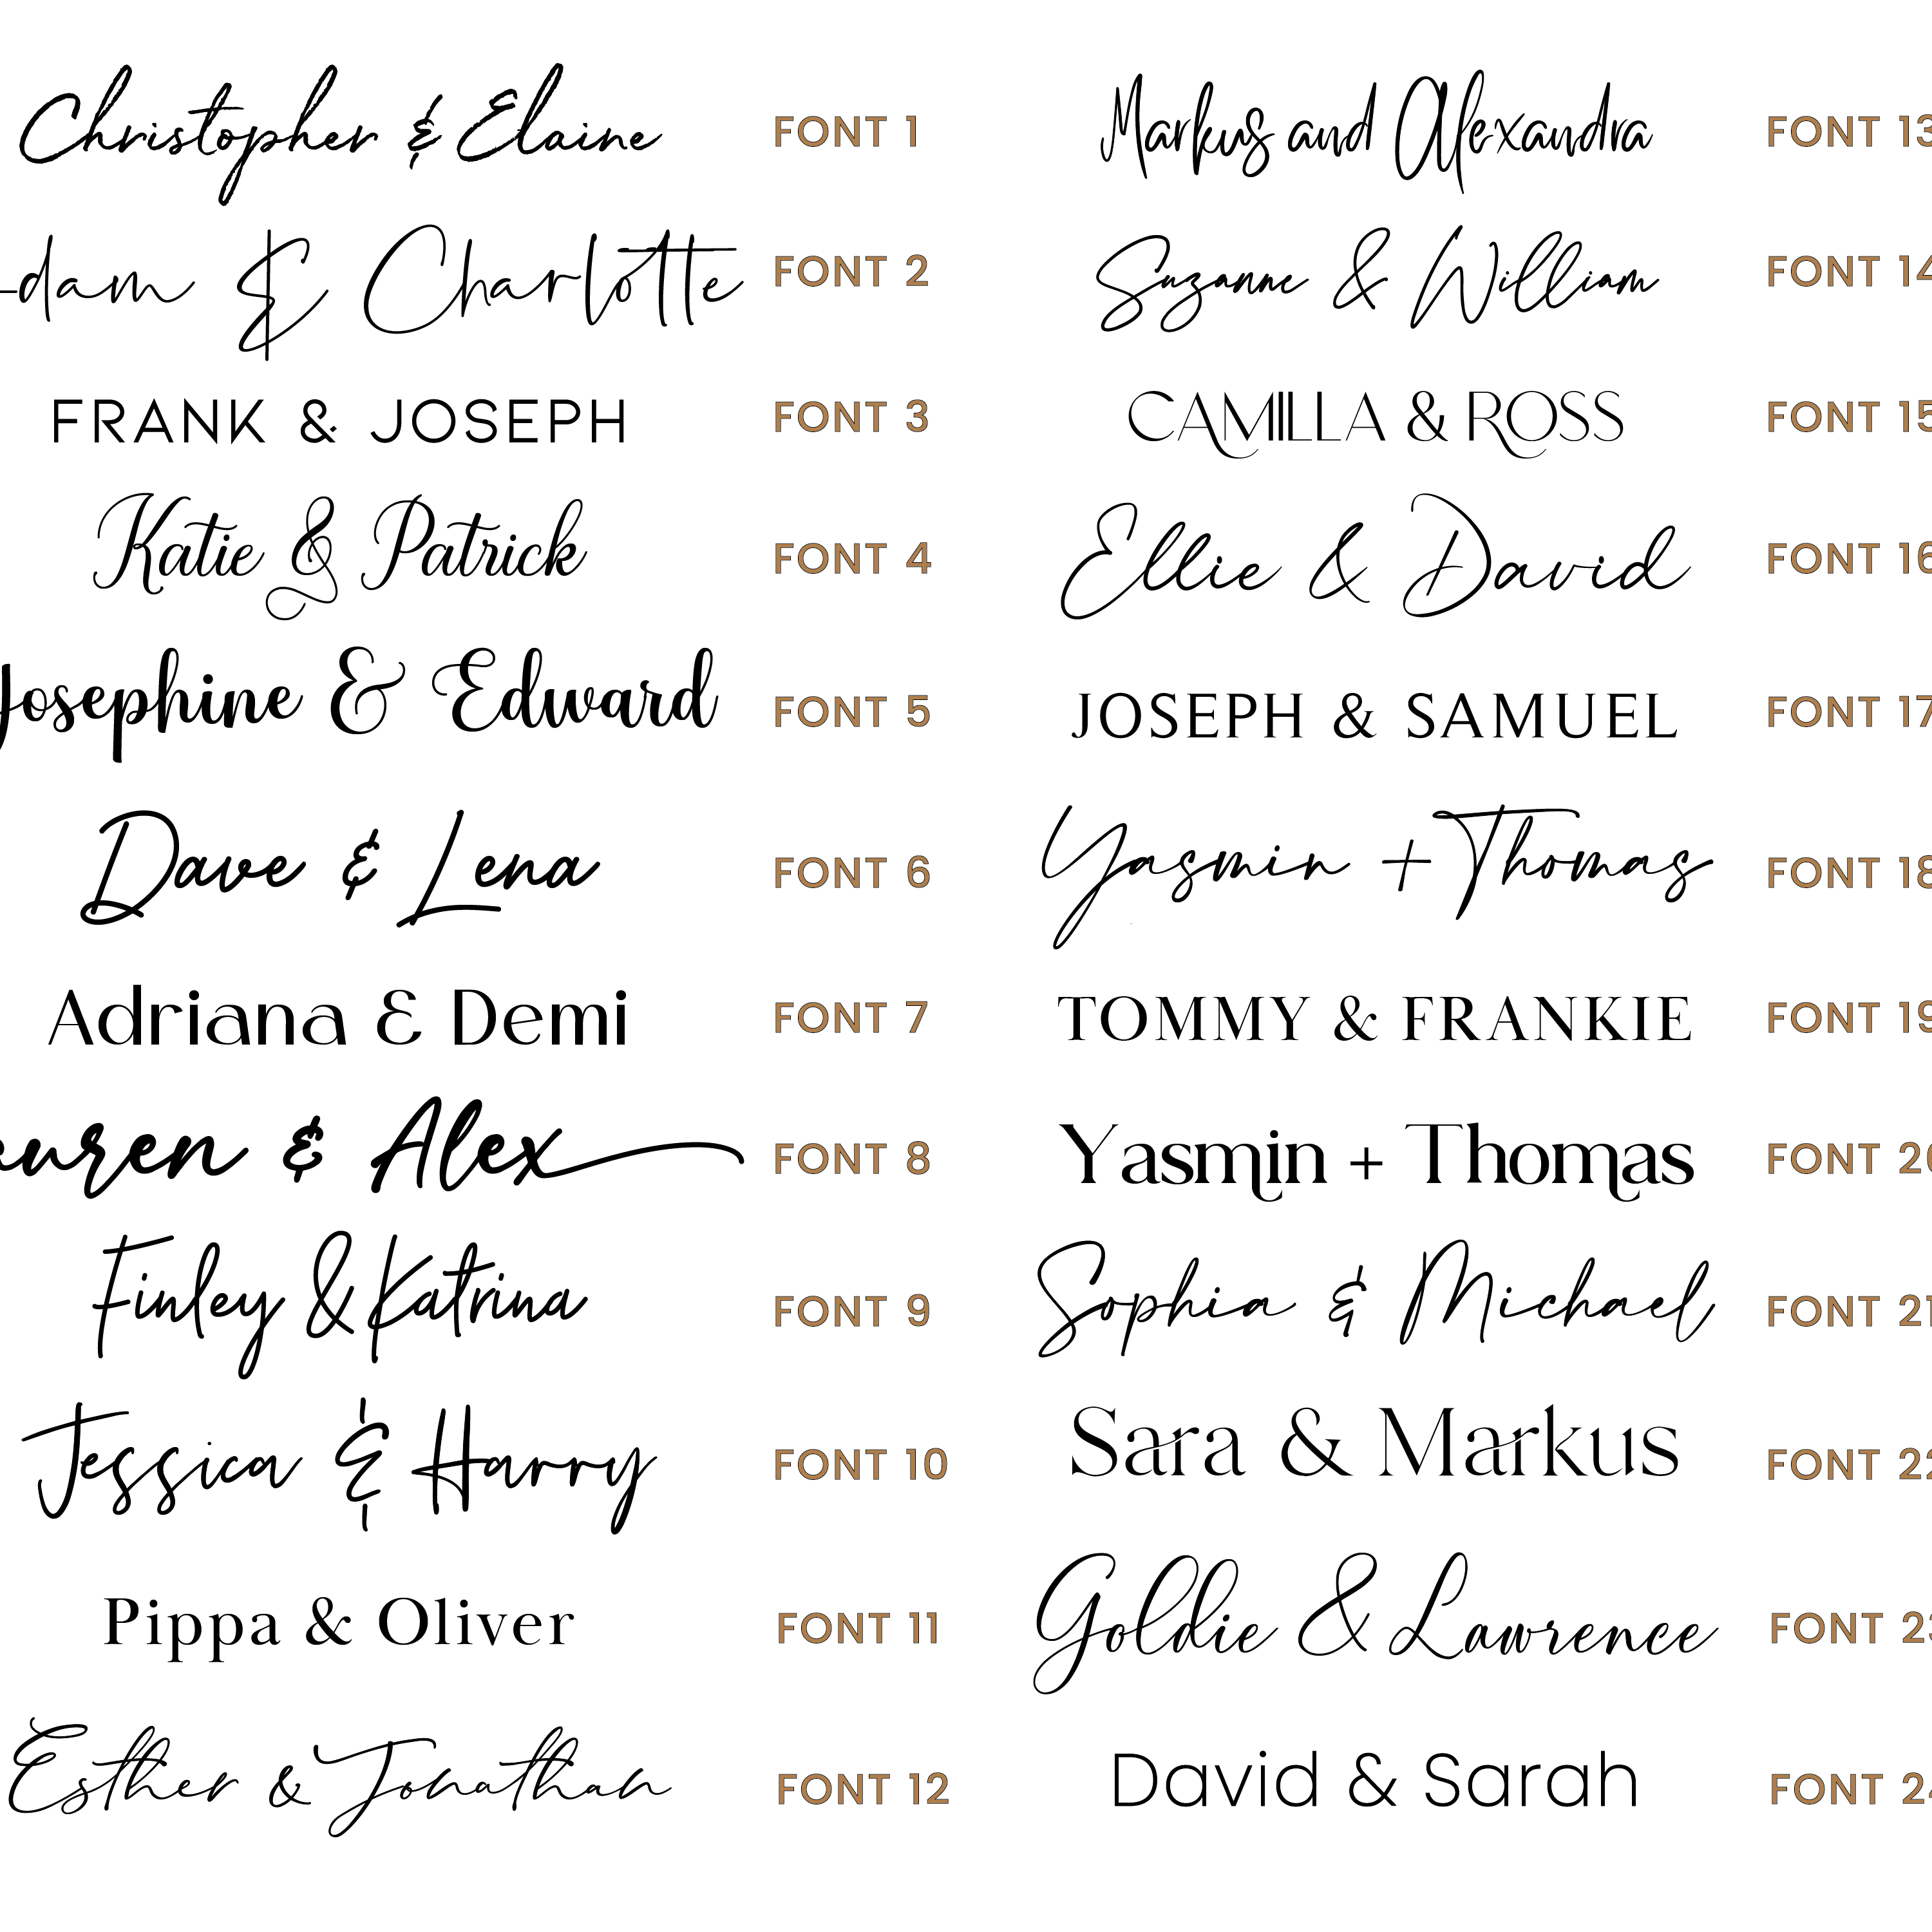 Christopher & Elaine FONT 1
dam & Charlotte FONT 2
FRANK & JOSEPH FONT 3
Katie & Patrick FONT 4
Josephine & Edward FONT 5
Dave & Lena FONT 6
Adriana & Demi FONT 7
uren & Alex FONT 8
Finley & Katrina FONT 9
Jessica & Harry FONT 10
Pippa & Oliver FONT 11
Esther & Jonathan FONT 12
Markus and Alexandra FONT 13
Suzanne & William FONT 14
CAMILLA & ROSS FONT 15
Ellie & David FONT 16
JOSEPH & SAMUEL FONT 17
Yasmin + Thomas FONT 18
TOMMY & FRANKIE FONT 19
Yasmin + Thomas FONT 20
Sophia & Michael FONT 21
Sara & Markus FONT 22
Goldie & Lawrence FONT 23
David & Sarah FONT 24